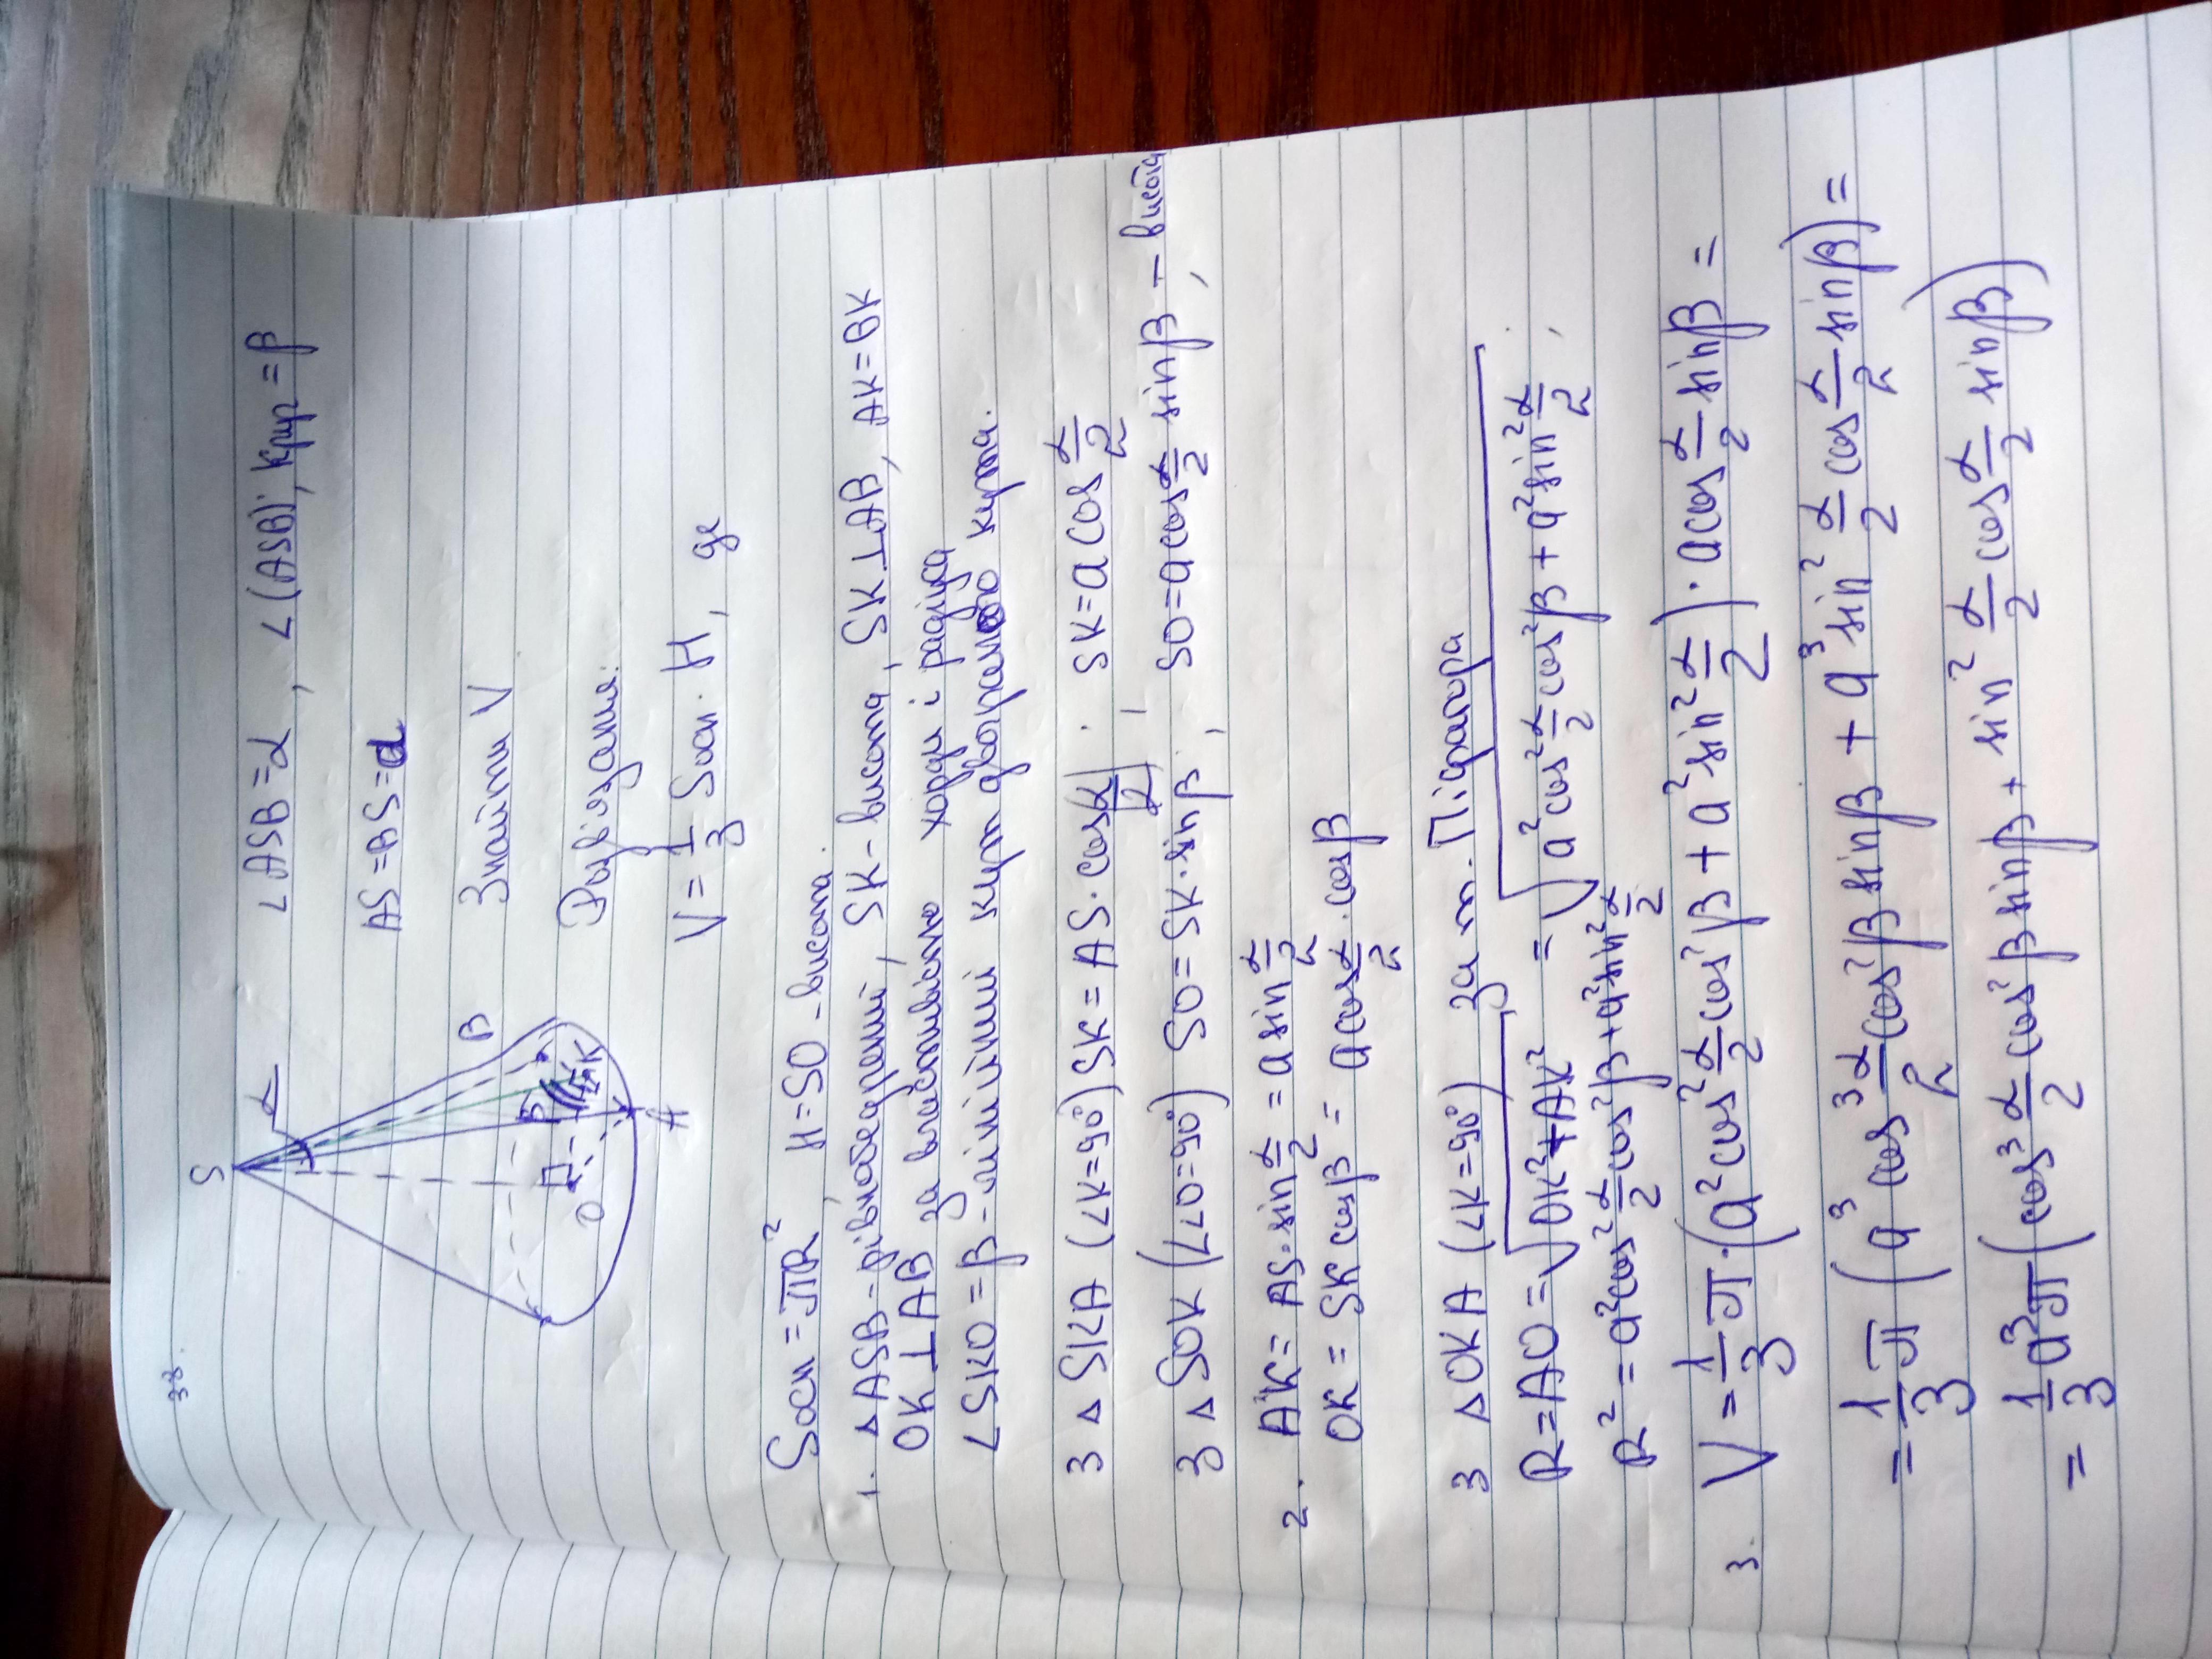 38.
S
α
B
β
K
O
A
∠ASB=α, ∠(ASB), кут=β
AS=BS=a
Знайти V
Розв'язання:
V = 1/3 Sосн · H, де
Sосн = πR², H=SO - висота.
1. △ASB - рівнобедрений, SK - висота, SK⊥AB, AK=BK
OK⊥AB за
∠SKO = β - лінійний кут двогранного кута.
З △SKA (∠K=90°) SK = AS·cos α/2; SK = a cos α/2
З △SOK (∠O=90°) SO = SK·sinβ; SO = a cos α/2 sinβ - висота,
2. AK = AS·sin α/2 = a sin α/2
OK = SK cosβ = a cos α/2 · cosβ
З △OKA (∠K=90°) за т. Піфагора
R=AO = √(OK²+AK²) = √(a² cos² α/2 cos²β + a² sin² α/2),
R² = a² cos² α/2 cos²β + a² sin² α/2
3. V = 1/3 π·(a² cos² α/2 cos²β + a² sin² α/2) · a cos α/2 sinβ =
= 1/3 π (a³ cos³ α/2 cos²β sinβ + a³ sin² α/2 cos α/2 sinβ) =
= 1/3 a³π (cos³ α/2 cos²β sinβ + sin² α/2 cos α/2 sinβ)